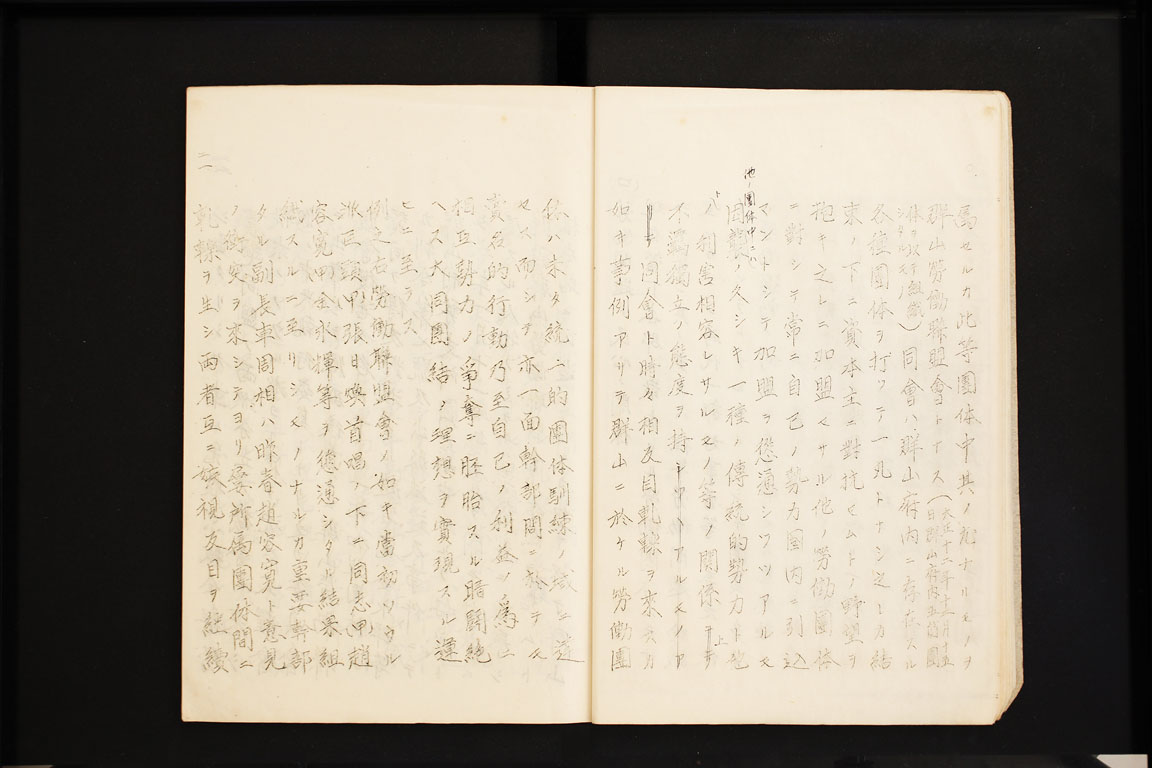 為セルカ此等團体中其ノ尤ナルモノヲ
群山勞働聯盟會トナス（大正十二年十二月十五
日群山府内五箇團
体ヲ以テ組織
シタルモノ）同會ハ群山府内ニ存在スル
各種團体ヲ打ツテ一丸トナシ之レカ結
束ノ下ニ資本主ニ對抗セムトノ野望ヲ
抱キ之レニ加盟セサル他ノ勞働團体
ニ對シテ常ニ自己ノ勢力圏内ニ引込
マントシテ加盟ヲ慫慂シツツアルモ
他ノ團体中ニハ
因襲ノ久シキ一種ノ傳統的勢力ト他
ト
ハ利害相容レサルモノ等ノ關係上
不羈獨立ノ態度ヲ持
テ同會ト時々相反目軋轢ヲ來スカ
如キ事例アリテ群山ニ於ケル勞働團
体ハ未タ統一的團体訓練ノ域ニ達
セス而シテ亦一面幹部間ニ於テモ
賣名的行動乃至自己ノ利益ノ為ニ
相互勢力ノ爭奪ニ胚胎スル暗鬪絶
ヘス大同團結ノ理想ヲ實現スル運
ヒニ至ラス
例之右勞働聯盟會ノ如キ當初ソウル
派巨頭甲張日煥首唱ノ下ニ同志甲趙
容寛甲金永輝等ヲ慫慂シタル結果組
織スルニ至リシモノナルカ重要幹部
タル副長車周相ハ昨春趙容寛ト意見
ノ衝突ヲ來シテヨリ委所属團体間ニ
軋轢ヲ生シ両者互ニ敵視反目ヲ継續
二